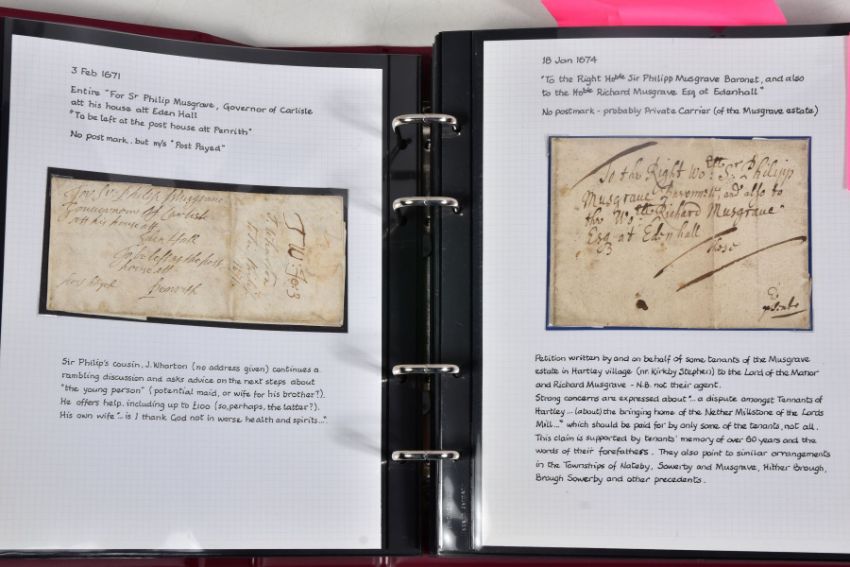 3 Feb 1671
Entire "For Sr Philip Musgrave, Governor of Carlisle
att his house att Eden Hall
"To be left at the post house att Penrith"
No postmark, but m/s "Post Payed"
For Sr Philip Musgrave
Governour off Carlisle
att his house att
Eden Hall
To be left att the post
house att
Penrith
Sir Philip's cousin, J. Wharton (no address given) continues a
rambling discussion and asks advice on the next steps about
"the young person" (potential maid, or wife for his brother?).
He offers help, including up to £100 (so, perhaps, the latter?).
His own wife "... is I thank God not in worse health and spirits..."
18 Jan 1674
"To the Right Hoble Sir Philipp Musgrave Baronet, and also
to the Hoble Richard Musgrave Esq at Edenhall"
No postmark - probably Private Carrier (of the Musgrave estate)
To the Right Wo:tt Sr Philipp
Musgrave Baronett, and also to
the Wo:tt Richard Musgrave
Esq at Edenhall
These
Petition written by and on behalf of some tenants of the Musgrave
estate in Hartley village (nr. Kirkby Stephen) to the Lord of the Manor
and Richard Musgrave - N.B. not their agent.
Strong concerns are expressed about "... a dispute amongst Tennants of
Hartley ... (about) the bringing home of the Nether Millstone of the Lords
Mill..." which should be paid for by only some of the tenants, not all.
This claim is supported by tenants' memory of over 60 years and the
words of their forefathers. They also point to similar arrangements
in the Townships of Nateby, Sowerby and Musgrave, Hither Brough,
Brough Sowerby and other precedents.